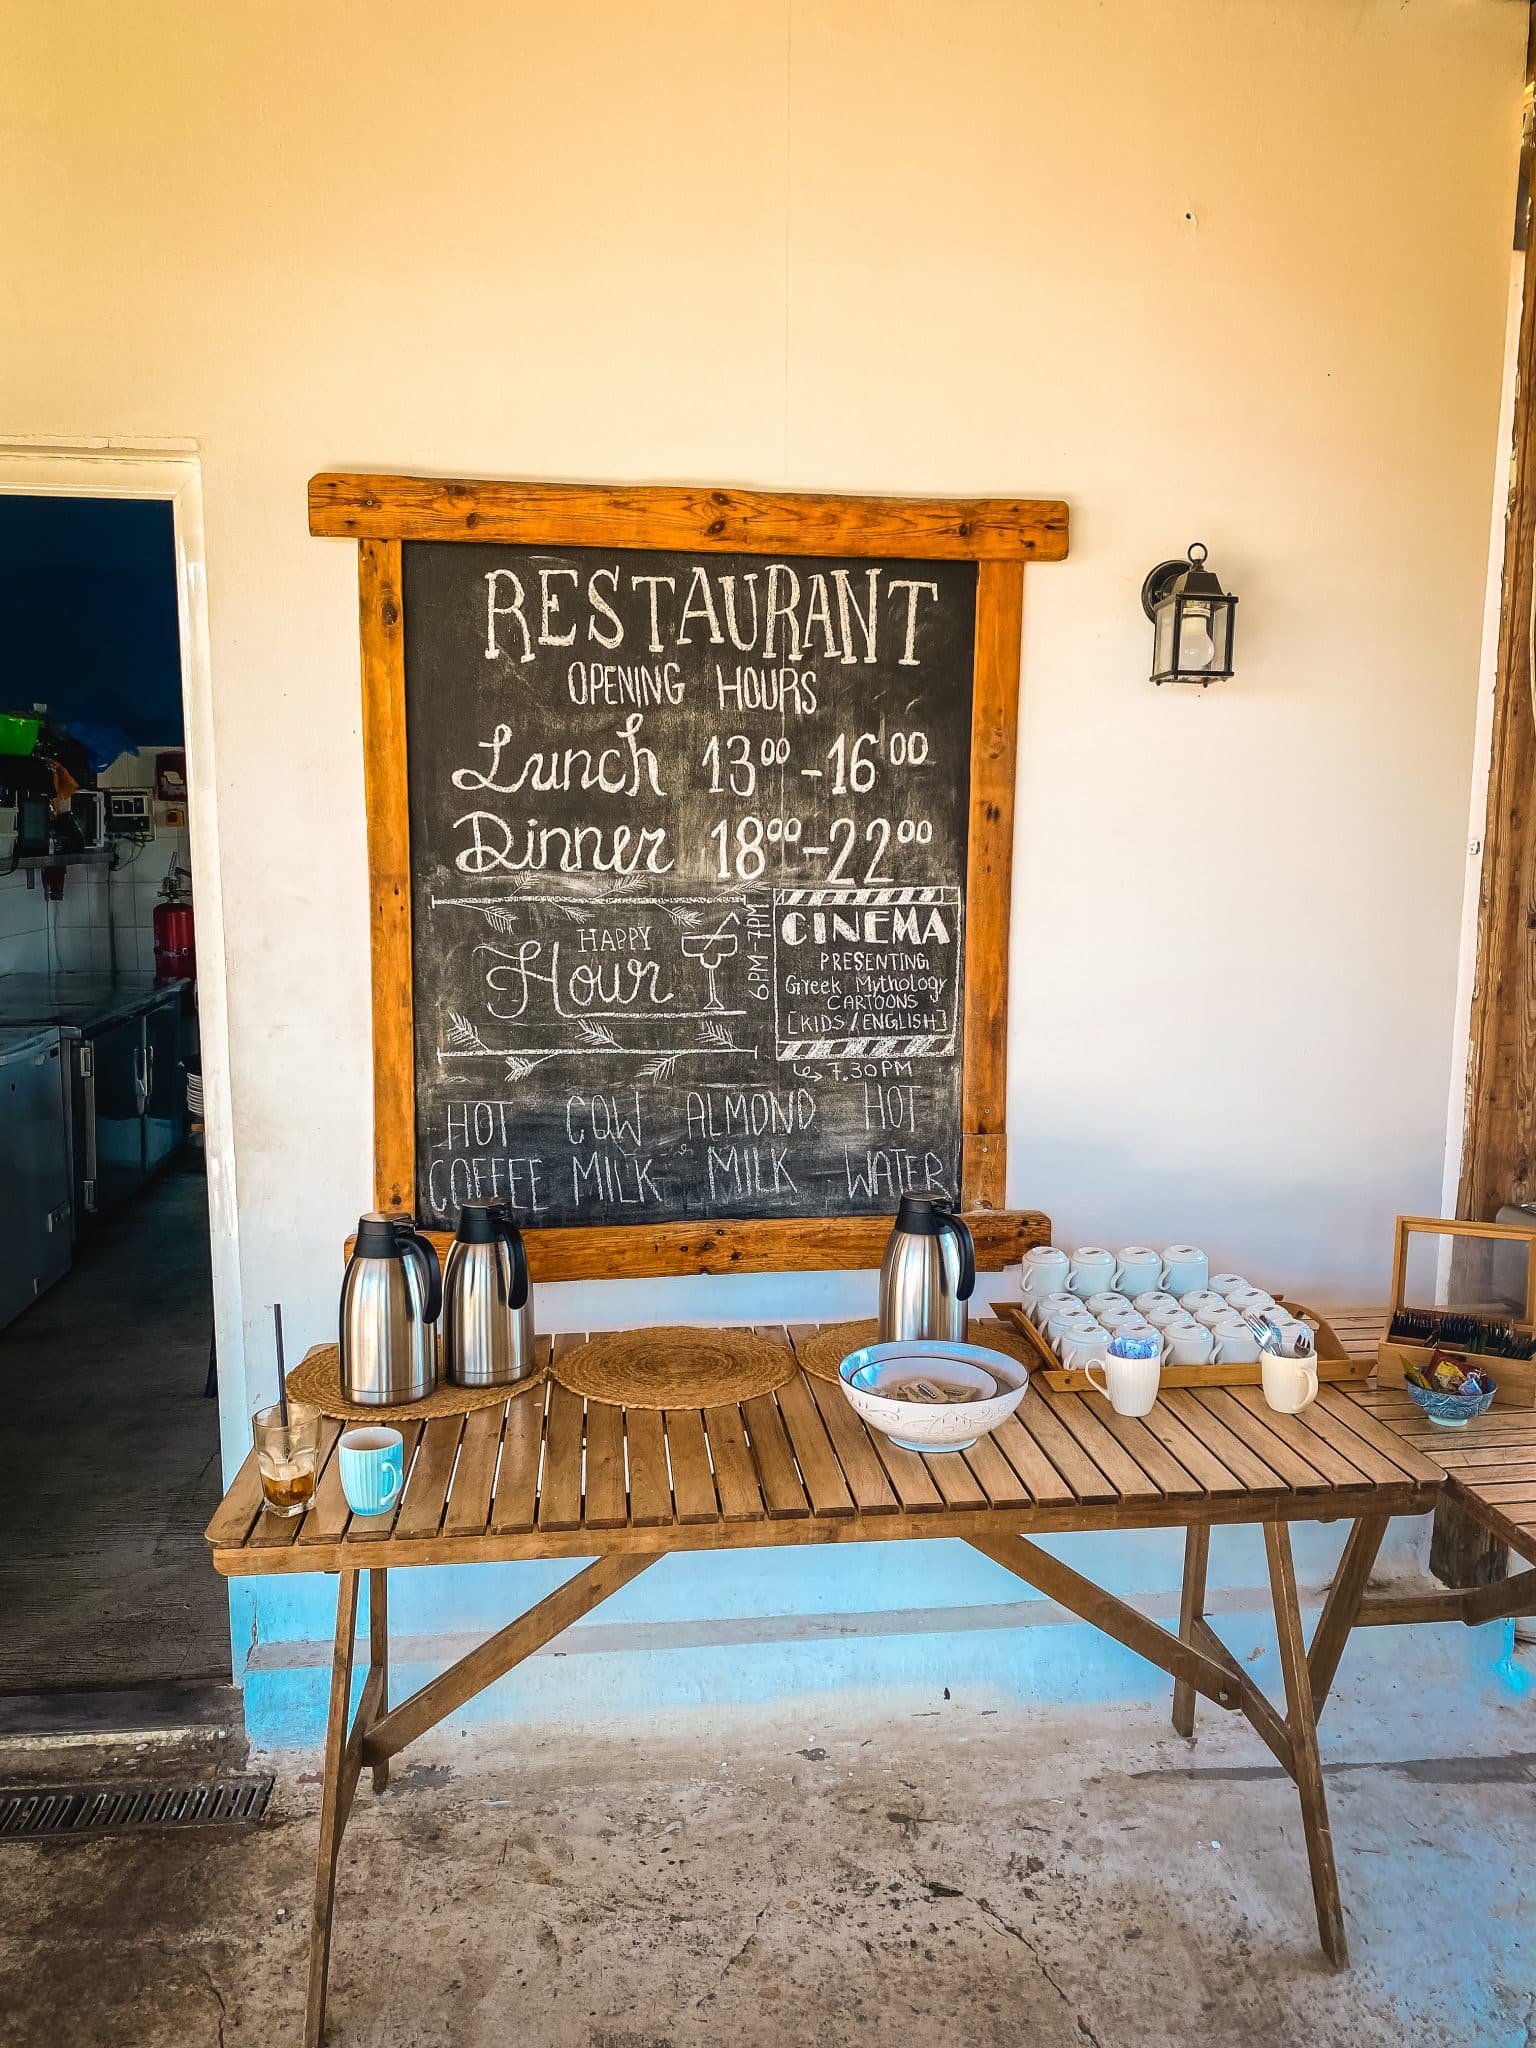 RESTAURANT
OPENING HOURS
Lunch 13⁰⁰ - 16⁰⁰
Dinner 18⁰⁰ - 22⁰⁰
HAPPY
Hour
6PM-7PM
CINEMA
PRESENTING
Greek Mythology
CARTOONS
[KIDS/ENGLISH]
7.30PM
HOT COW ALMOND HOT
COFFEE MILK MILK WATER